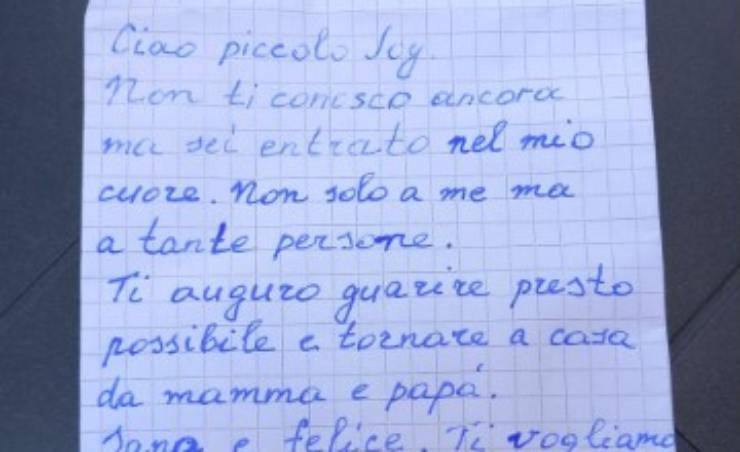 Ciao piccolo Joy.
Non ti conisco ancora
ma sei entrato nel mio
cuore. Non solo a me ma
a tante persone.
Ti auguro guarire presto
possibile e tornare a casa
da mamma e papá.
Sano e felice. Ti vogliamo